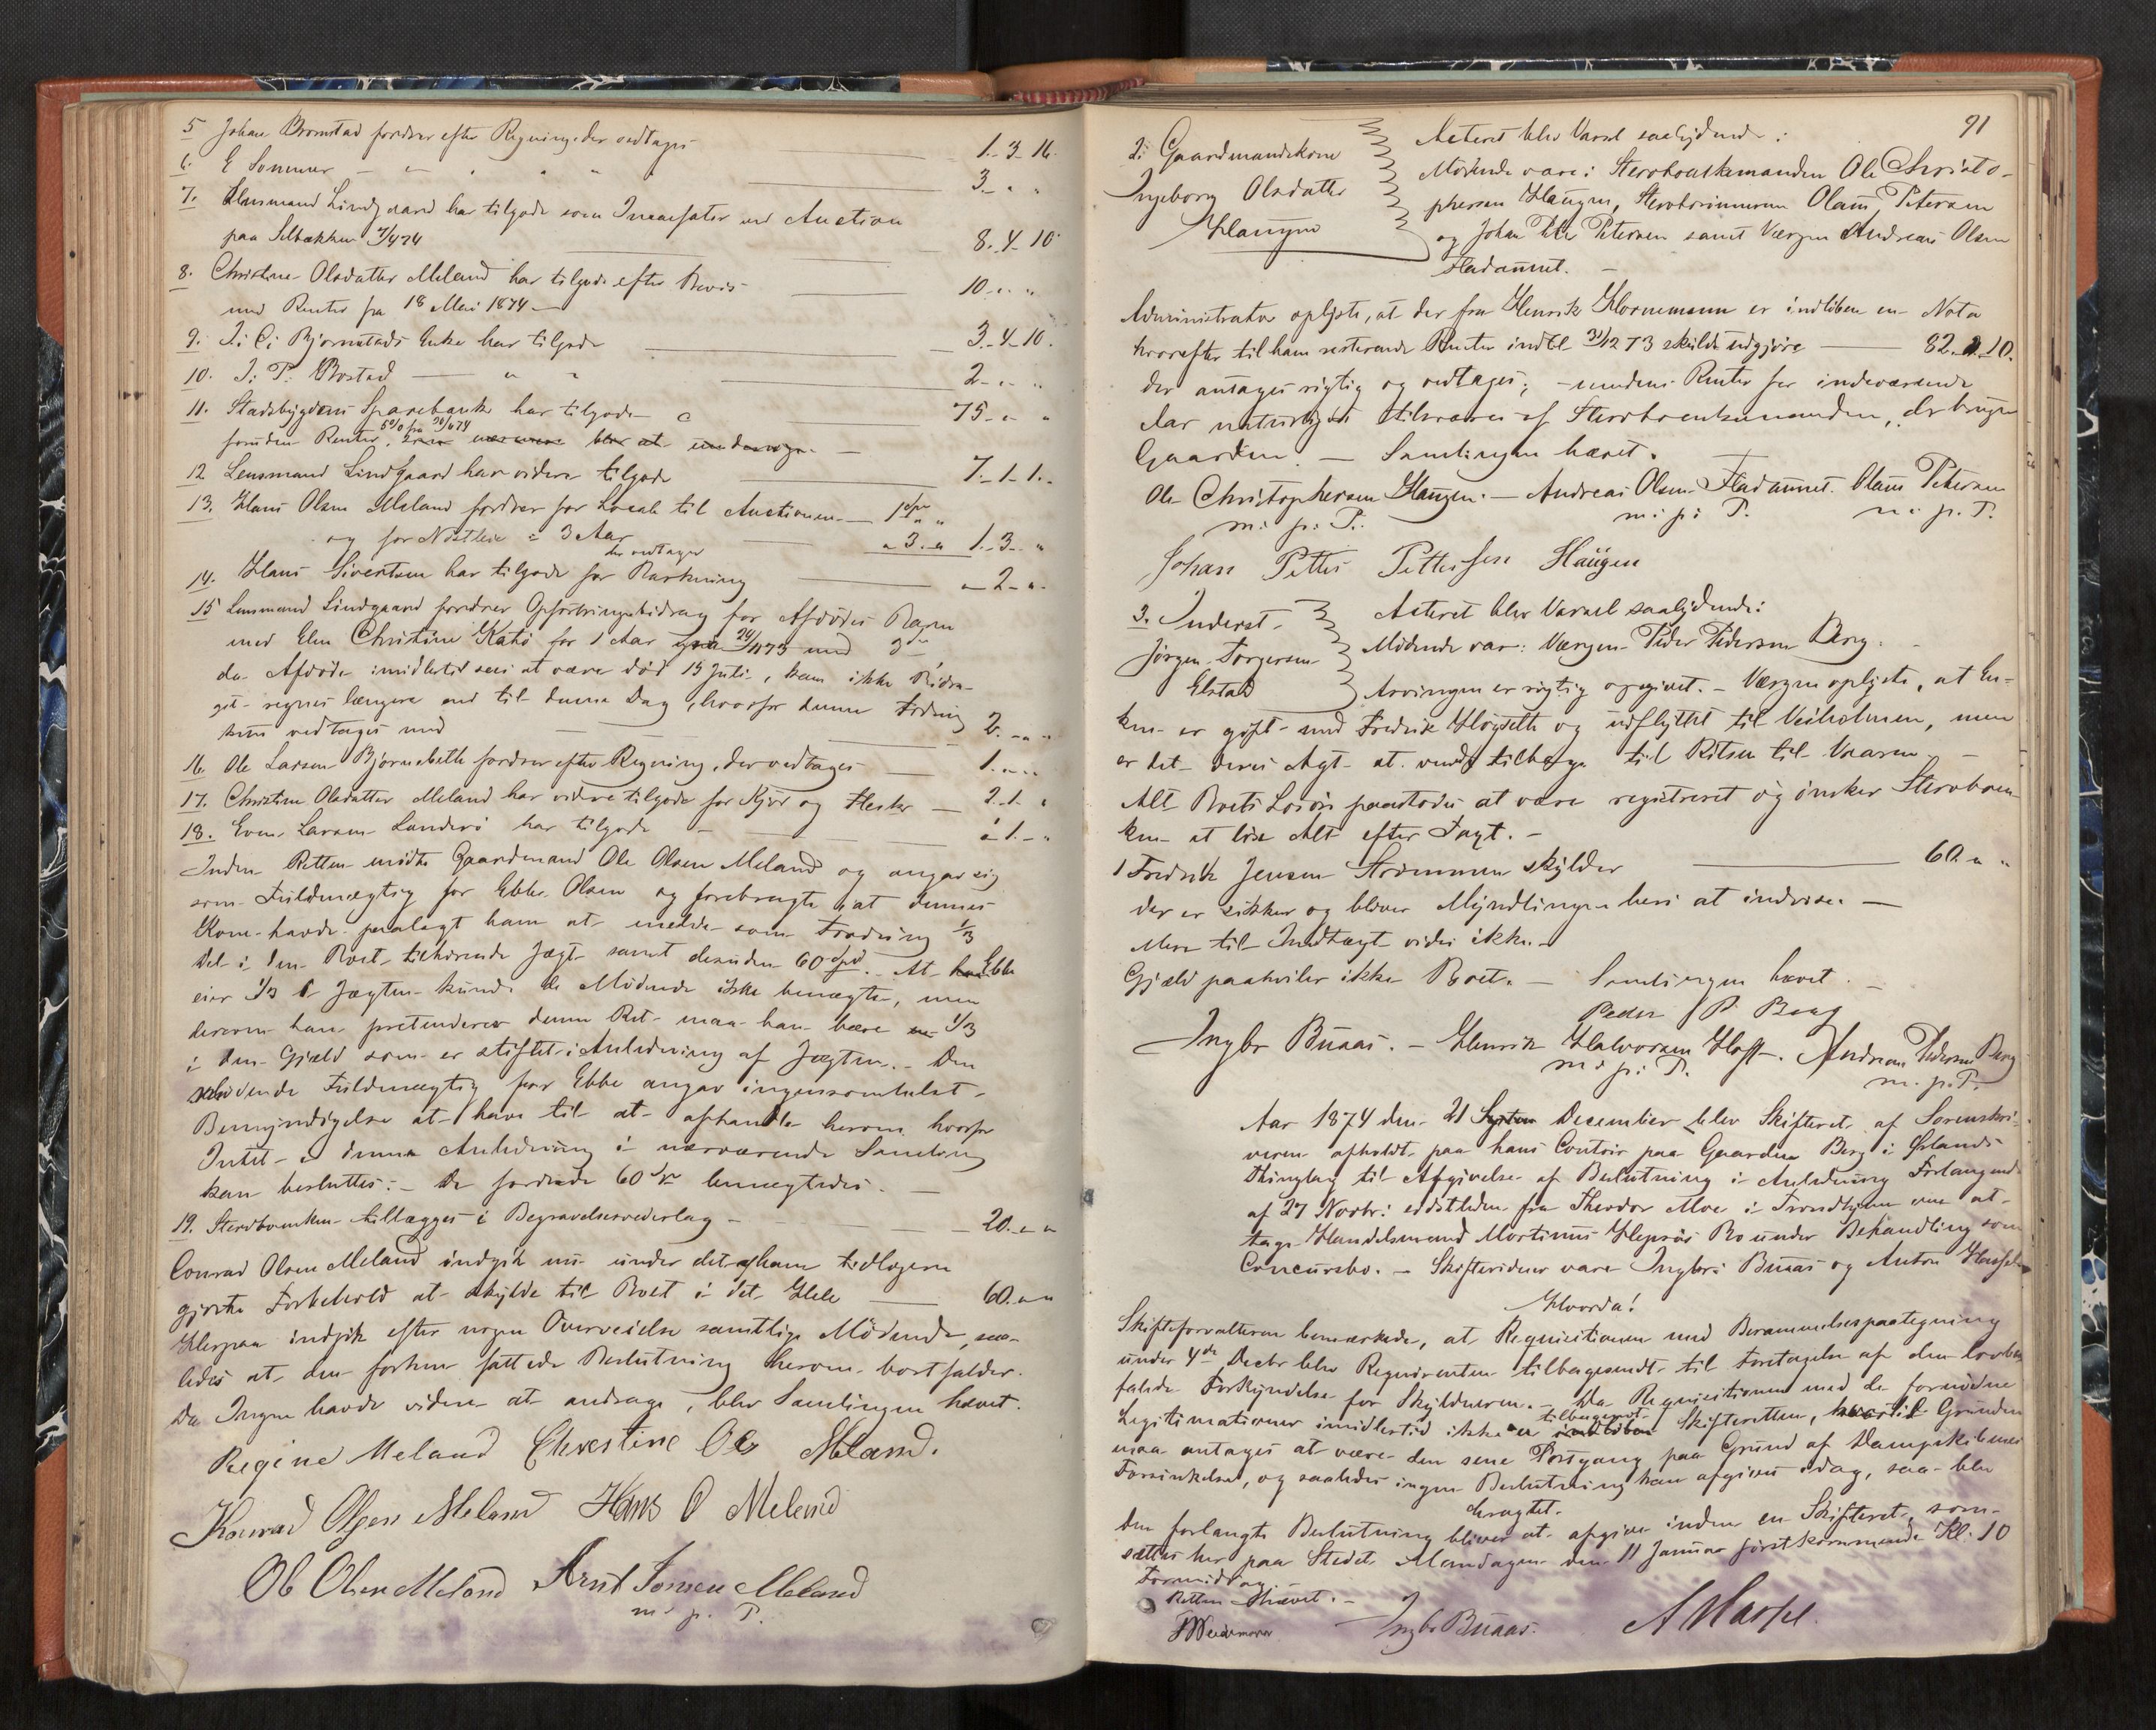 5 Johan Bromstad fordrer efter Regning der vedtages 1. 3. 16.
6. E Sommer " " " " 3. " "
7. Lensmand Lindgaard har tilgode som Incassator ved Auction
paa Selbækken 8. 4. 10
8. Christine Olsdatter Meland har tilgode efter Bevis
med Renter fra 18 Mai 1874 10. " "
9. J: C: Bjørnstads Enke har tilgode 3. 4. 10.
10. J: P: Bostad " " 2. " "
11. Stadsbygdens Sparebank har tilgode 75. " "
foruden Renter
12 Lensmand Lindgaard har videre tilgode 7. 1. 1.
13. Hans Olsen Meland fordrer for Locale til Auctionen 1 " "
og for i 3 Aar " 3. " 1. 3. "
der vedtages
14. Hans Sivertsen har tilgode for " 2. "
15 Lensmand Lindgaard fordrer Opfostringsbidrag for Afdødes Barn
med Elen Christine for 1 Aar med
da Afdøde imidlertid sees at være død 15 Juli, kan ikke Bidra-
get regnes længere end til denne Dag, hvorfor denne Fordring
kun vedtages med 2. " "
16. Ole Larsen fordrer efter Regning, der vedtages 1. " "
17. Christine Olsdatter Meland har videre tilgode for Kjød og Flesk 2. 1. "
18. Even Larsen har tilgode " 1. "
Inden Retten mødte Gaardmand Ole Olsen Meland og angav sig
som Fuldmægtig for Ebbe Olsen og forebragte at dennes
Kone havde paalagt ham at melde som Fordring 1/3
Del i den Boet tilhørende Jægt samt desuden 60 Spd. At Ebbe
eier 1/3 i Jægten kunde de Mødende ikke benægte, men
dersom han pretenderer denne Ret maa han bære 1/3
i den Gjæld som er stiftet i Anledning af Jægten. Den
mødende Fuldmægtig for Ebbe angav ingensomhelst
Bemyndigelse at have til at afhandle herom hvorfor
Intet i denne Anledning i nærværende Samling
kan besluttes. De fordrede 60 benægtedes.
19. Sterboenken tillægges i Begravelsesvederlag 20. " "
Conrad Olsen Meland indgik nu under det af ham tidligere
gjorte Forbehold at skylde til Boet i det Hele 60. " "
Herpaa indgik efter nogen Overveielse samtlige Mødende, saa-
ledes at den forhen fattede Beslutning herom bortfalder.
Da Ingen havde videre at andrage, blev Samlingen hævet.
Regine Meland Christine Ols Meland.
Konrad Olsen Meland Hans O Meland
Ol Olsen Meland Arnt Jonsen Meland
m. p. P.
91
2: Gaardmandskone
Ingeborg Olsdatter
Haugen
Acteret blev Varsel saalydende:
Mødende vare: Sterboenkemanden Ole Christo-
phersen Haugen, Sterbosønnerne Olaus Petersen
og Johan Peter Petersen samt Værgen Andreas Olsen
Fladaunet.
Administrator oplyste, at der fra Henrik Hornemann er indleben en Nota
hvorefter til ham resterende Renter indtil 31/12 73 skulde udgjøre 82. 2. 10.
der ansages rigtig og vedtages; medens Renter for indeværende
Aar naturligvis tilsvares af Sterboenkemanden, der bruger
Gaarden. Samlingen hævet.
Ole Christophersen Haugen. Andreas Olsen Fladaunet. Olaus Petersen
m: p: P. m: p: P. m: p. P.
Johan Petter Pettersen Haugen
3. Inderst
Jørgen Torgersen
Elstad
Acteret blev Varsel saalydende:
Mødende var: Værgen Peder Pedersen Berg.
Arvingen er rigtig opgivet. Værgen oplyste, at En-
ken er gift med Fredrik og udflyttet til Veiholmen, men
er det deres Agt at vende tilbage til Rissen til Vaaren.
Alt Boets Løsøre paastodes at være registreret og ønsker Sterboen-
ken at løse Alt efter Taxt.
1 Fredrik Jensen Strømmen skylder 60. " "
der er sikker og bliver Myndlingen heri at indvise.
Mere til Indtægt vides ikke.
Gjæld paahviler ikke Boet. Samlingen hævet.
Peder P Berg
Ingbr Buaas. Henrik Halvorsen Hoff. Andreas Pedersen Berg
m: p: P. m. p. P.
Aar 1874 den 21 December blev Skifteret af Sorenskri-
veren afholdt paa hans Contoir paa Gaarden Berg i Ørlands
Thinglag til Afgivelse af Beslutning i Anledning Forlangende
af 27 Novbr: sidstleden fra Theodor Moe i Trondhjem om at
tage Handelsmand Martinus Bo under Behandling som
Concursbo. Skiftevidner vare Ingbr: Buaas og Anton
Hvorda!
Skifteforvalteren bemærkede, at Requisitionen med Berammelsespaategning
under 4de Decbr blev Requirenten tilbagesendt til Foretagelse af den lovbe-
falede Forkyndelse for Skyldneren. Da Requisitionen med de fornødne
tilbagesendt
Legitimationer imidlertid ikke er Skifteretten, hvortil Grunden
maa antages at være den sene Postgang paa Grund af Dampskibenes
Forsinkelse, og saaledes ingen Beslutning kan afgives idag, saa blev
Eragtet.
Den forlangte Beslutning bliver at afgive inden en Skifteret, som
sættes her paa Stedet Mandagen den 11 Januar førstkommende Kl. 10
Formiddag.
Retten hævet.
Ingbr Buaas.